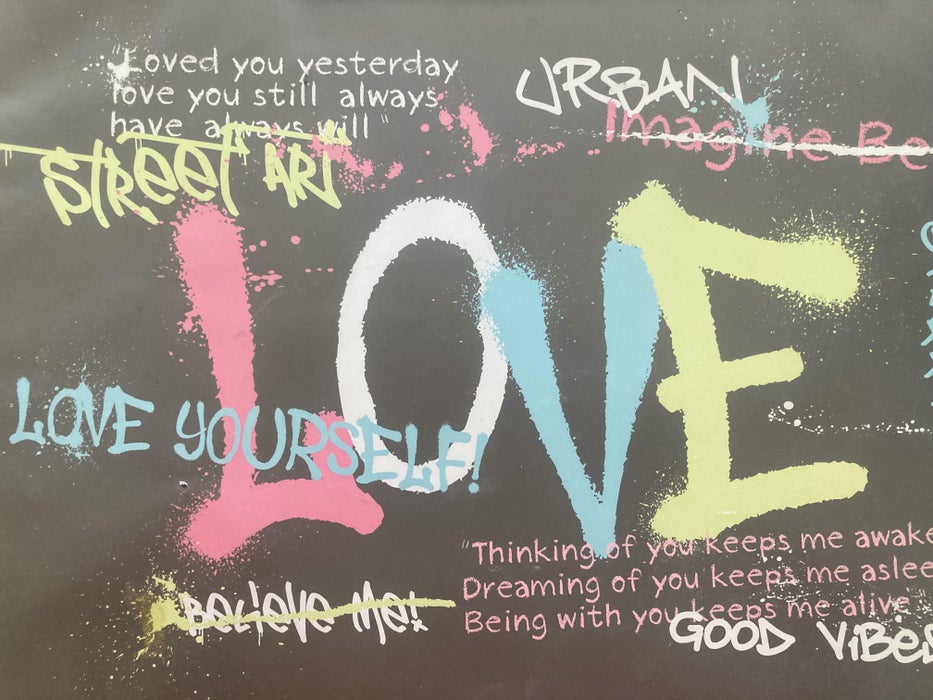 "Loved you yesterday
love you still always
have always will"
URBAN
Imagine Be
STREET ART
LOVE
LOVE YOURSELF!
"Thinking of you keeps me awake
Dreaming of you keeps me aslee
Being with you keeps me alive"
BELieVe Me!
GOOD ViBes